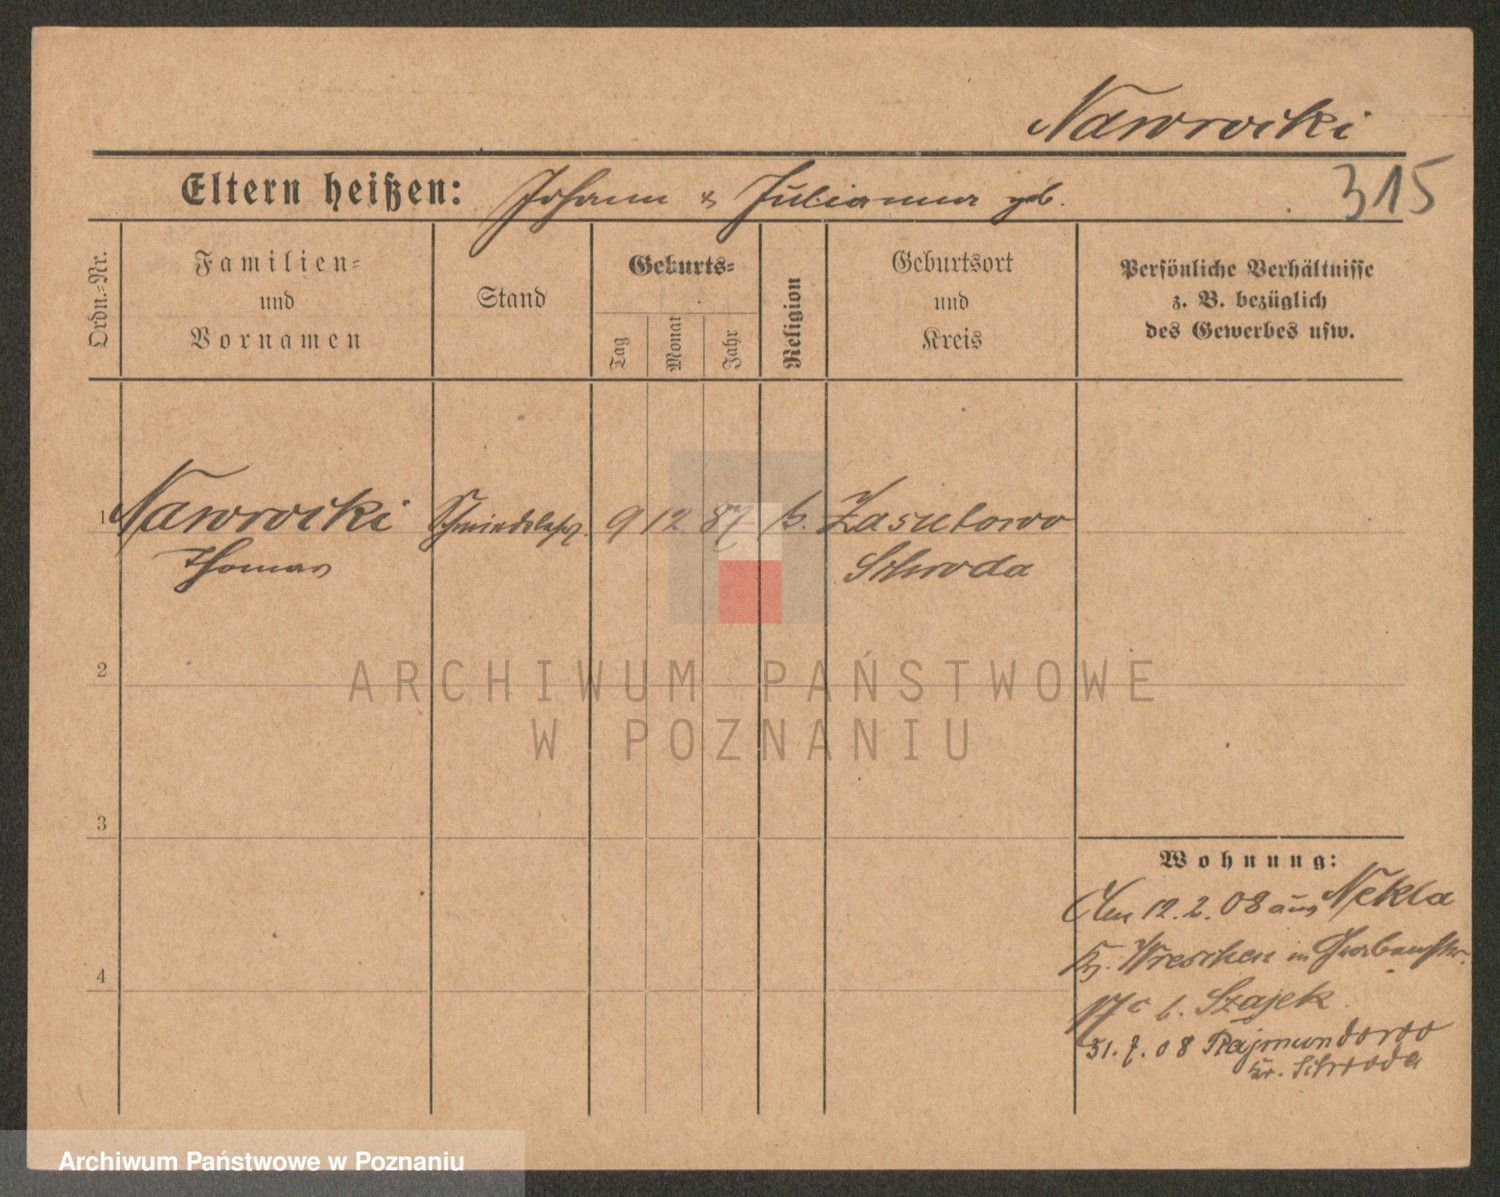 Nawrocki
Eltern heißen: Johann & Julianna geb.
315
Ordn.-Nr.
Familien-
und
Vornamen
Stand
Geburts-
Tag
Monat
Jahr
Religion
Geburtsort
und
Kreis
Persönliche Verhältnisse
z. B. bezüglich
des Gewerbes usw.
1 Nawrocki 9 12 87 k. Zasutowo
Thomas Schroda
2
3
4
Wohnung:
12.2.08 aus Nekla
Kr. Wreschen in
17c b. Szajek
31.7.08 Rajmundowo
Kr. Schroda
ARCHIWUM PAŃSTWOWE
W POZNANIU
Archiwum Państwowe w Poznaniu